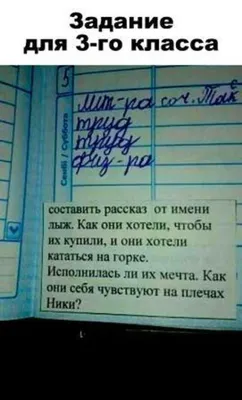 Задание
для 3-го класса
5
Сенбі / Суббота
лит-ра соч. Так
труд
труд
физ-ра
составить рассказ от имени
лыж. Как они хотели, чтобы
их купили, и они хотели
кататься на горке.
Исполнилась ли их мечта. Как
они себя чувствуют на плечах
Ники?